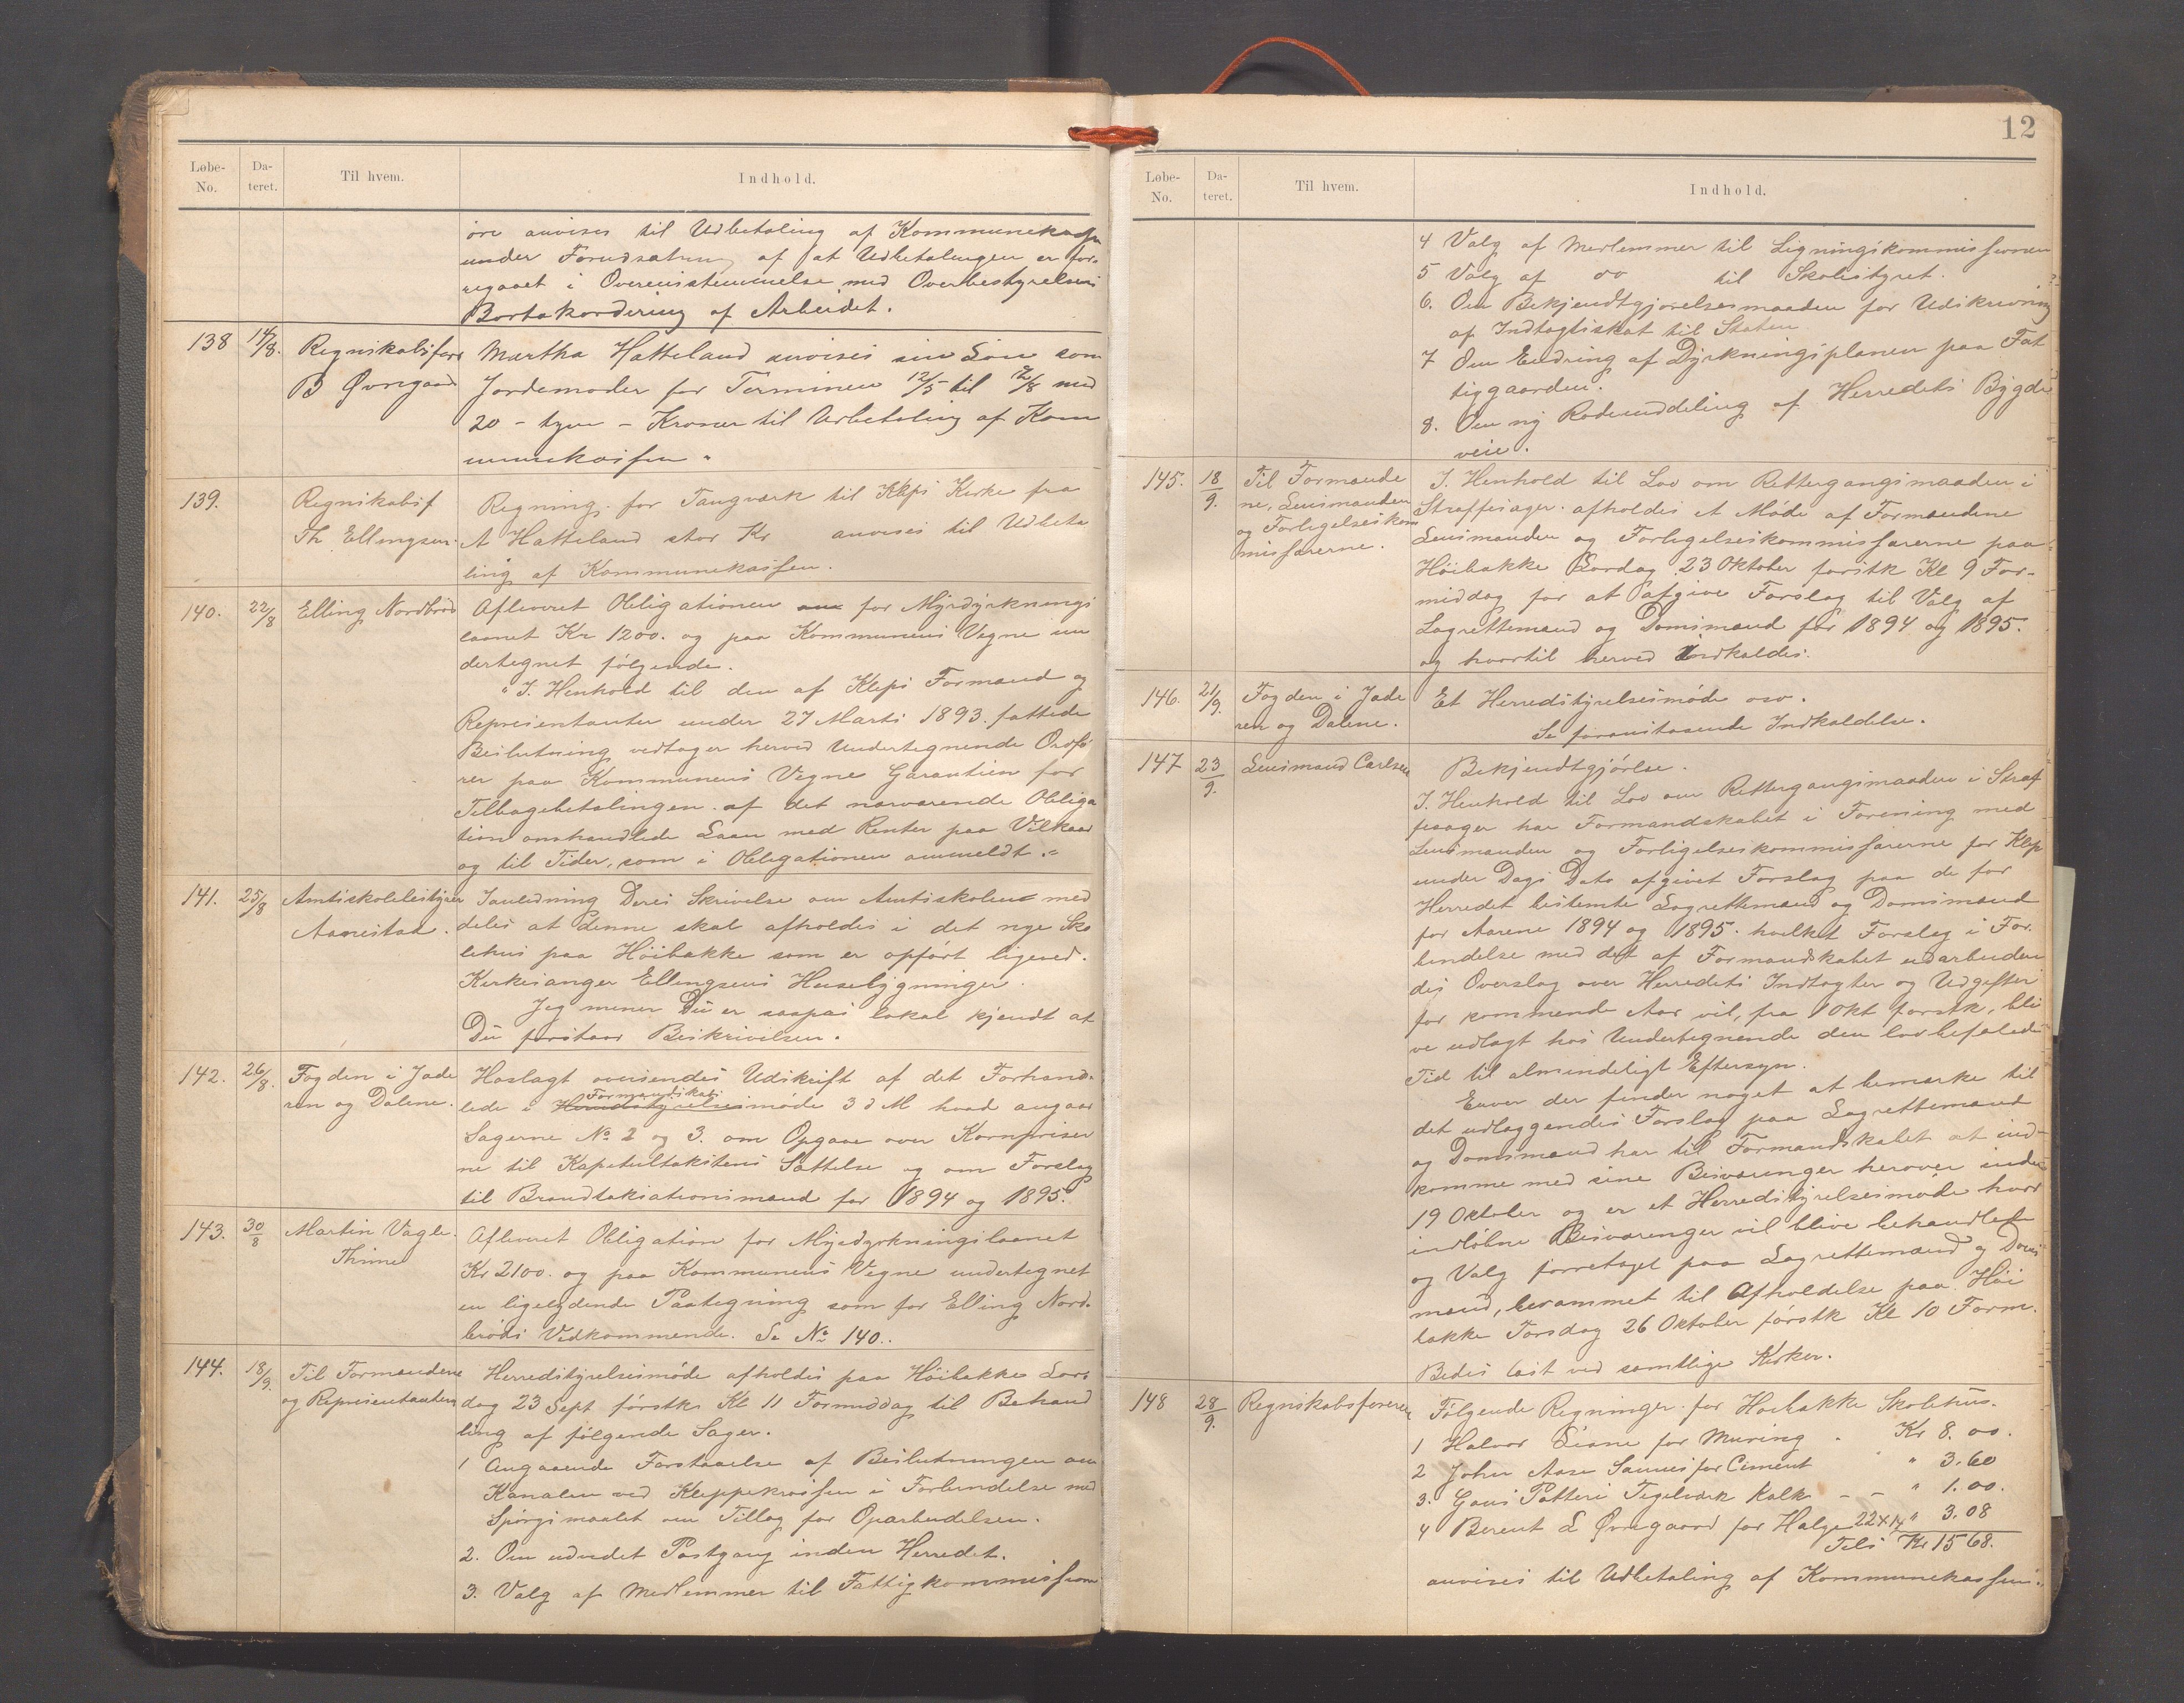 Løbe-No.
Da-teret.
Til hvem.
Indhold.
øre anvises til Udbetaling af Kommunekassen
under Forudsætning af at Udbetalingen er for-
egaaet i Overensstemmelse med Overbestyrelsens
Bortakordering af Arbeidet.
138 14/8. Regnskabsfører B Øvregaard
Martha Hatteland anvises sin Løn som
Jordemoder for Terminen 12/5 til 12/8 med
20 - tyve - Kroner til Udbetaling af Kom
munekassen "
139. Regnskabsf Th Ellingsen.
Regning for Tangværk til Klepp Kirke fra
A Hatteland stor Kr anvises til Udbeta
ling af Kommunekassen.
140. 22/8 Elling Nordbrød
Afleveret Obligationen for Myrdyrknings
laanet Kr 1200. og paa Kommunens Vegne un
dertegnet følgende.
"I Henhold til den af Klepps Formænd og
Repræsentanter under 27 Marts 1893. fattede
Beslutning vedtager herved Undertegnende Ordfø
rer paa Kommunens Vegne Garantien for
Tilbagebetalingen af det nærværende Obliga
tion omhandlede Laan med Renter paa Vilkaar
og til Tider, som i Obligationen anmeldt."
141. 25/8 Amtsskolebestyrer Aarrestad.
I anledning Deres Skrivelse om Amtsskolen med
deles at denne skal afholdes i det nye Sko
lehus paa Höibakke som er opført ligeved
Kirkesanger Ellingsens Husebygninger.
Jeg mener Du er saapas lokal kjendt at
Du forstaar Beskrivelsen.
142. 26/8. Fogden i Jæde ren og Dalene.
Hoslagt oversendes Udskrift af det Forhand-
lede i Herredstyrelses Formandskabsmøde 3 d M hvad angaar
Sagerne No 2 og 3. om Opgave over Kornpriser
ne til Kapiteltakstens Sættelse og om Forslag
til Brandtakstationsmænd for 1894 og 1895.
143. 30/8 Martin Vagle. Thime
Afleveret Obligation for Myrdyrkningslaanet
Kr 2100. og paa Kommunens Vegne undertegnet
en ligelydende Paategning som for Elling Nord-
brøds Vedkommende. Se No 140..
144. 18/9. Til Formændene og Representanterne
Herredstyrelsesmøde afholdes paa Höibakke Lør-
dag 23 Sept førstk Kl 11 Formiddag til Behand
ling af følgende Sager.
1 Angaaende Forstaaelse af Beslutningen om
Kanalen ved Kleppekrossen i Forbindelse med
Spørgsmaalet om Tillæg for Oparbeidelsen.
2. Om udvidet Postgang inden Herredet.
3. Valg af Medlemmer til Fattigkommissionen
12
Løbe-No.
Da-teret.
Til hvem.
Indhold.
4 Valg af Medlemmer til Ligningskommissionen
5 Valg af do til Skolestyret.
6. Om Bekjendtgjørelsesmaaden for Udskrivning
af Indtægtsskat til Staten.
7 Om Endring af Dyrkningsplanen paa Fat
tiggaarden.
8. Om ny Rodeinddeling af Herredets Bygde
veie.
145. 18/9. Til Formænde ne, Lensmanden og Forligelseskom missærerne.
I. Henhold til Lov om Rettergangsmaaden i
Straffesager. afholdes et Møde af Formændene
Lensmanden og Forligelseskommissærerne paa
Höibakke Lørdag 23 Oktober førstk Kl 9 For-
middag for at afgive Forslag til Valg af
Lagrettemænd og Domsmænd for 1894 og 1895.
og hvortil herved Indkaldes.
146. 21/9. Fogden i Jæde ren og Dalene.
Et Herredstyrelsesmøde osv.
Se foranstaaende Indkaldelse.
147 23/9. Lensmand Carlsen
Bekjendtgjørelse.
I. Henhold til Lov om Rettergangsmaaden i Straf
fesager har Formandskabet i Forening med
Lensmanden og Forligelseskommissærerne for Klep
under Dags Dato afgivet Forslag paa de for
Herredet bestemte Lagrettemænd og Domsmænd
for Aarene 1894 og 1895. hvilket Forslag i For-
bindelse med det af Formandskabet udarbeide
des Overslag over Herredets Indtægter og Udgifter
for kommende Aar vil, fra 1 Okt førstk, bli
ve udlagt hos Undertegnende den lovbefalede
Tid til almindeligt Eftersyn.
Enver der finder noget at bemærke til
det udlæggendes Forslag paa Lagrettemænd
og Domsmænd har til Formandskabet at ind-
komme med sine Besværinger herover inden
19 Oktober og er et Herredstyrelsesmøde hvor
indløbne Besværinger vil blive behandlede
og Valg foretaget paa Lagrettemænd og Doms
mænd, berammet til Afholdelse paa Höi
bakke Torsdag 26 Oktober førstk Kl 10 Form.
Bedes læst ved samtlige Kirker.
148 28/9. Regnskabsføreren
Følgende Regninger for Høibakke Skolehus.
1 Halvor Liane for Muring " Kr 8.00.
2 John Aase Sannes for Cement " 3.60
3. Gans Potteri Tegelværk Kalk - - " 1.00.
4 Berent L Øvregaard for Halge 22x14 " 3.08
Tils Kr 15 68.
anvises til Udbetaling af Kommunekassen.